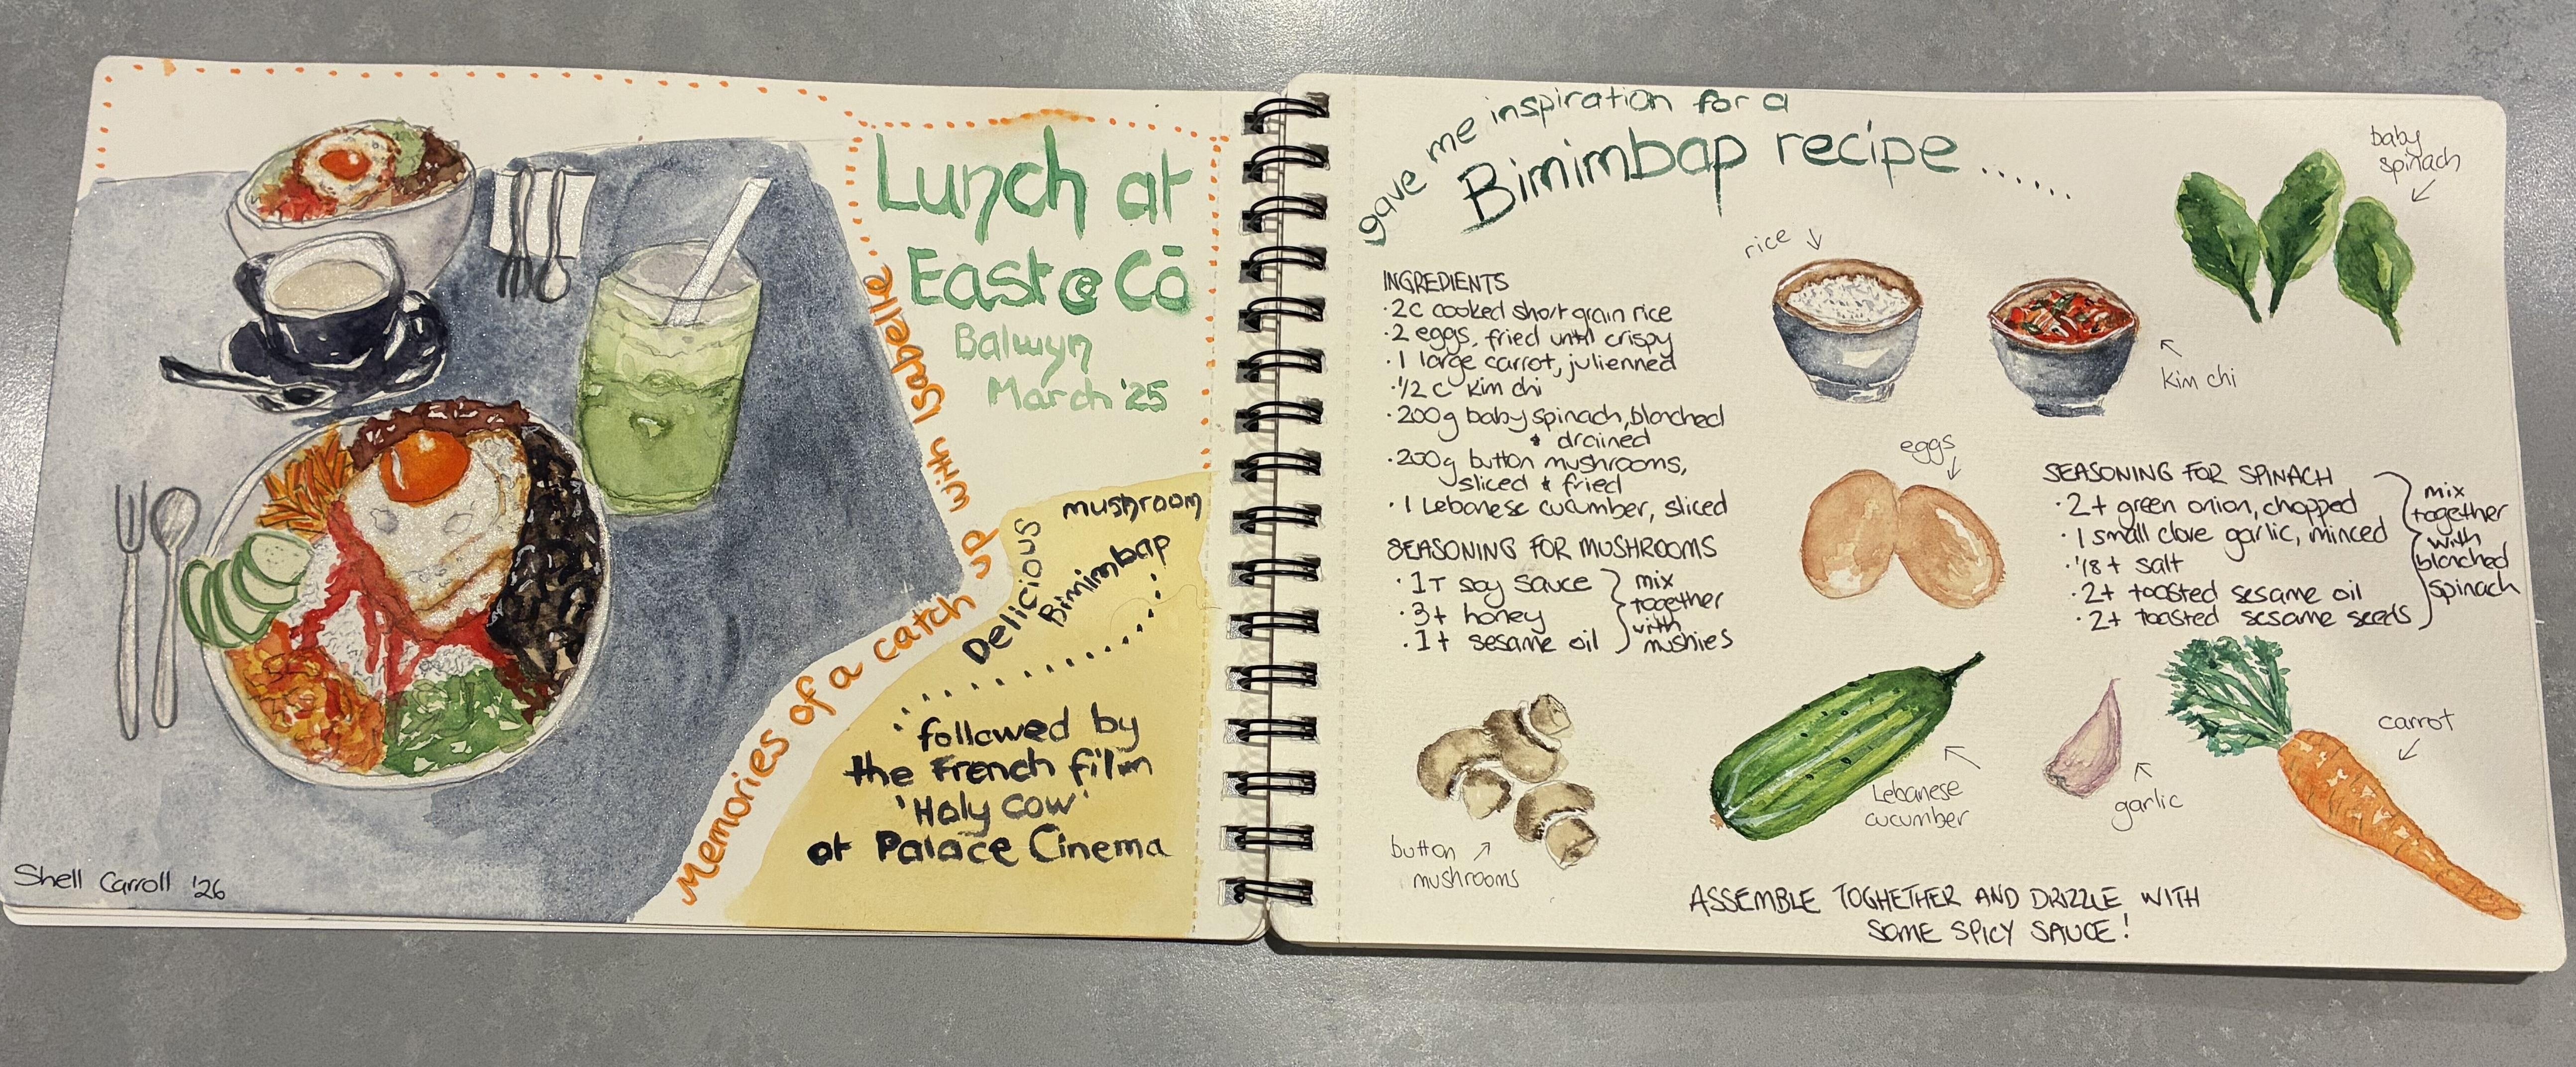 Lunch at
East @ Cō
Balwyn
March '25
Memories of a catch up with Isabelle
Delicious
mushroom
Bimimbap
followed by
the French film
'Holy Cow'
at Palace Cinema
Shell Carroll '26
gave me inspiration for a
Bimimbap recipe......
baby
spinach
rice
kim chi
eggs
INGREDIENTS
· 2c cooked short grain rice
· 2 eggs, fried until crispy
· 1 large carrot, julienned
· 1/2 c kim chi
· 200g baby spinach, blanched
& drained
· 200g button mushrooms,
sliced & fried
· 1 Lebanese cucumber, sliced
SEASONING FOR MUSHROOMS
· 1T soy sauce
· 3t honey
· 1t sesame oil
mix
together
with
mushies
SEASONING FOR SPINACH
· 2t green onion, chopped
· 1 small clove garlic, minced
· 1/8t salt
· 2t toasted sesame oil
· 2t toasted sesame seeds
mix
together
with
blanched
spinach
button
mushrooms
Lebanese
cucumber
garlic
carrot
ASSEMBLE TOGHETHER AND DRIZZLE WITH
SOME SPICY SAUCE!